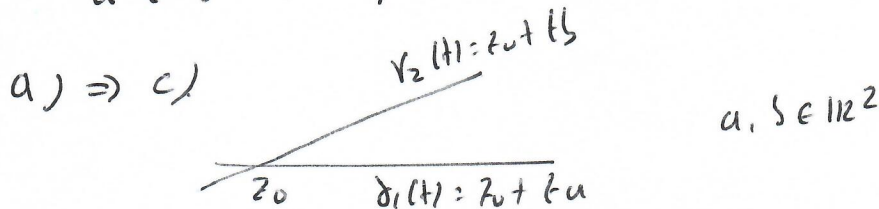 a) ⇒ c)
γ₂(t) = z₀ + tb
a, b ∈ ℝ²
z₀ γ₁(t) = z₀ + ta